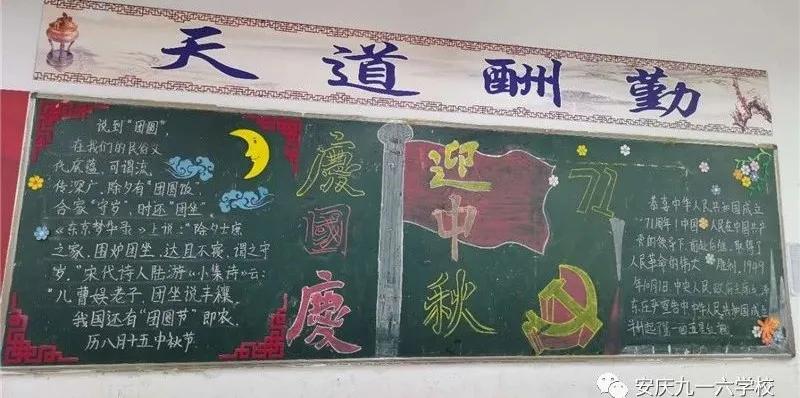 天道酬勤
说到“团圆”，
在我们的民俗文
化底蕴，可谓流
传深广，除夕有“团圆饭”
合家“守岁”，时还“团坐”，
《东京梦华录》上说：“除夕士庶
之家，围炉团坐，达旦不寐，谓之守
岁。”宋代诗人陆游《小集诗》云：
“儿曹娱老子，团坐说丰穰，
我国还有“团圆节”即农
历八月十五中秋节
慶國慶
迎中秋
71
恭喜中华人民共和国成立
71周年！中国 人民在中国共产
党的领导下，前赴后继，取得了
人民革命的伟大 胜利，1949
年10月1日，中央人民政府主席
中华人民共和国成立
五星红旗
安庆九一六学校